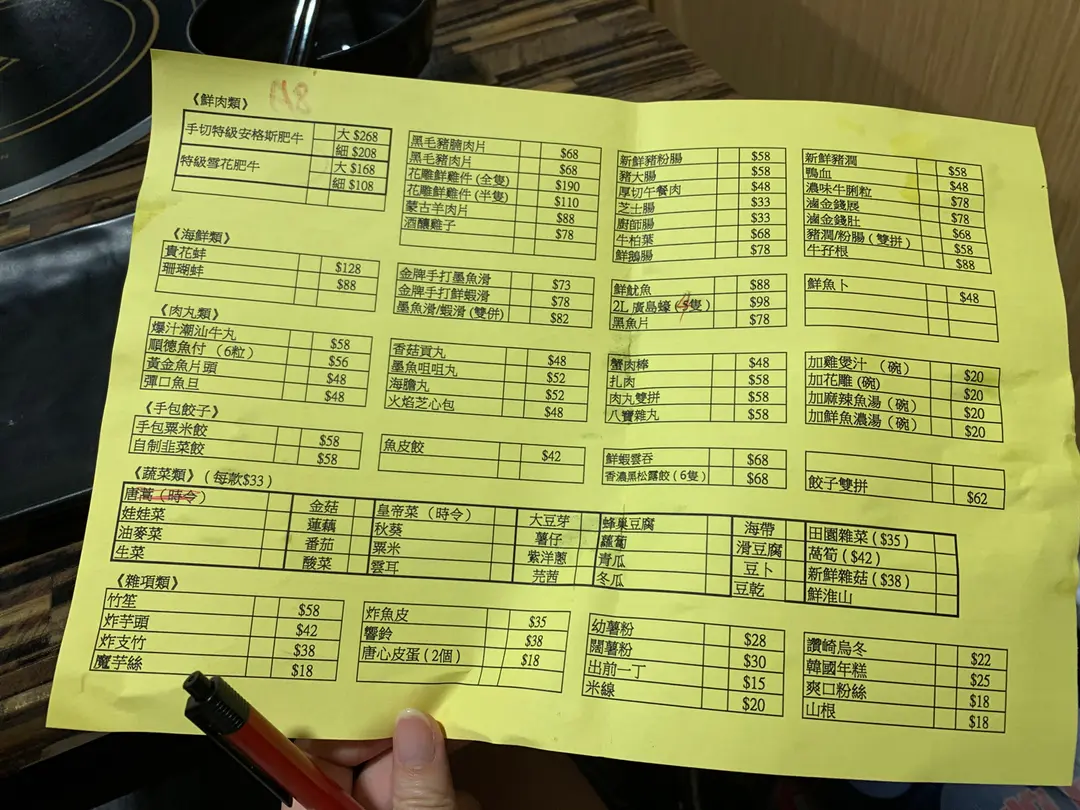 《鮮肉類》
手切特級安格斯肥牛 大 $268
細 $208
特級雪花肥牛 大 $168
細 $108
黑毛豬腩肉片 $68
黑毛豬肉片 $68
花雕鮮雞件 (全隻) $190
花雕鮮雞件 (半隻) $110
蒙古羊肉片 $88
酒釀雞子 $78
新鮮豬粉腸 $58
豬大腸 $58
厚切午餐肉 $48
芝士腸 $33
廚師腸 $33
牛柏葉 $68
鮮鵝腸 $78
新鮮豬潤 $58
鴨血 $48
濃味牛脷粒 $78
滷金錢展 $78
滷金錢肚 $68
豬潤/粉腸 (雙拼) $58
牛孖根 $88
《海鮮類》
貴花蚌 $128
珊瑚蚌 $88
金牌手打墨魚滑 $73
金牌手打鮮蝦滑 $78
墨魚滑/蝦滑 (雙併) $82
鮮魷魚 $88
2L 廣島蠔 (隻) $98
黑魚片 $78
鮮魚卜 $48
《肉丸類》
爆汁潮汕牛丸 $58
順德魚付 (6粒) $56
黃金魚片頭 $48
彈口魚旦 $48
香菇貢丸 $48
墨魚咀咀丸 $52
海膽丸 $52
火焰芝心包 $48
蟹肉棒 $48
扎肉 $58
肉丸雙拼 $58
八寶雜丸 $58
加雞煲汁 (碗) $20
加花雕 (碗) $20
加麻辣魚湯 (碗) $20
加鮮魚濃湯 (碗) $20
《手包餃子》
手包粟米餃 $58
自制韭菜餃 $58
魚皮餃 $42
鮮蝦雲吞 $68
香濃黑松露餃 (6隻) $68
餃子雙拼 $62
《蔬菜類》(每款$33)
唐蒿 (時令) 金菇 皇帝菜 (時令) 大豆芽 蜂巢豆腐 海帶 田園雜菜 ($35)
娃娃菜 蓮藕 秋葵 薯仔 蘿蔔 滑豆腐 萵筍 ($42)
油麥菜 番茄 粟米 紫洋蔥 青瓜 豆卜 新鮮雜菇 ($38)
生菜 酸菜 雲耳 芫茜 冬瓜 豆乾 鮮淮山
《雜項類》
竹笙 $58
炸芋頭 $42
炸支竹 $38
魔芋絲 $18
炸魚皮 $35
響鈴 $38
唐心皮蛋 (2個) $18
幼薯粉 $28
闊薯粉 $30
出前一丁 $15
米線 $20
讚崎烏冬 $22
韓國年糕 $25
爽口粉絲 $18
山根 $18